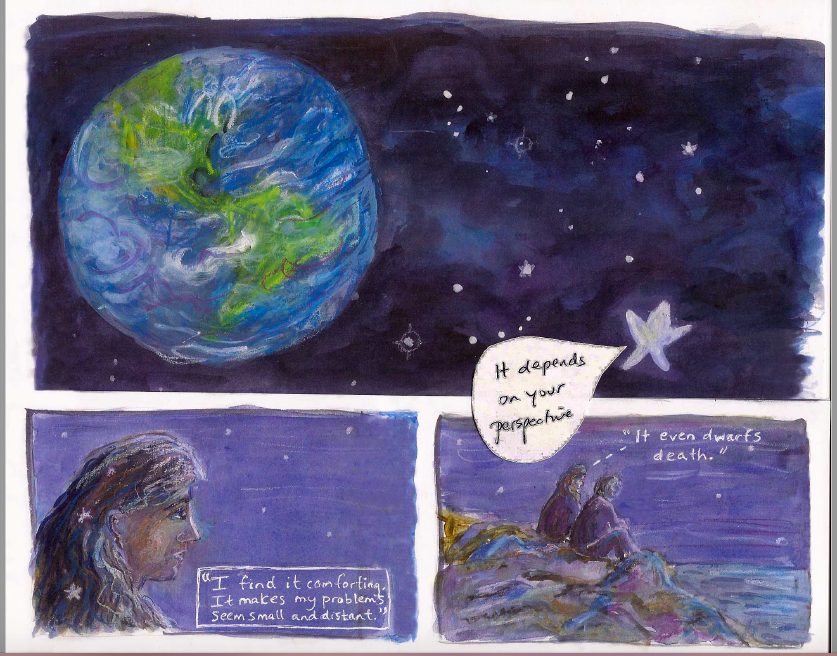 It depends
on your
perspective
"I find it comforting.
It makes my problems
seem small and distant."
"It even dwarfs
death."